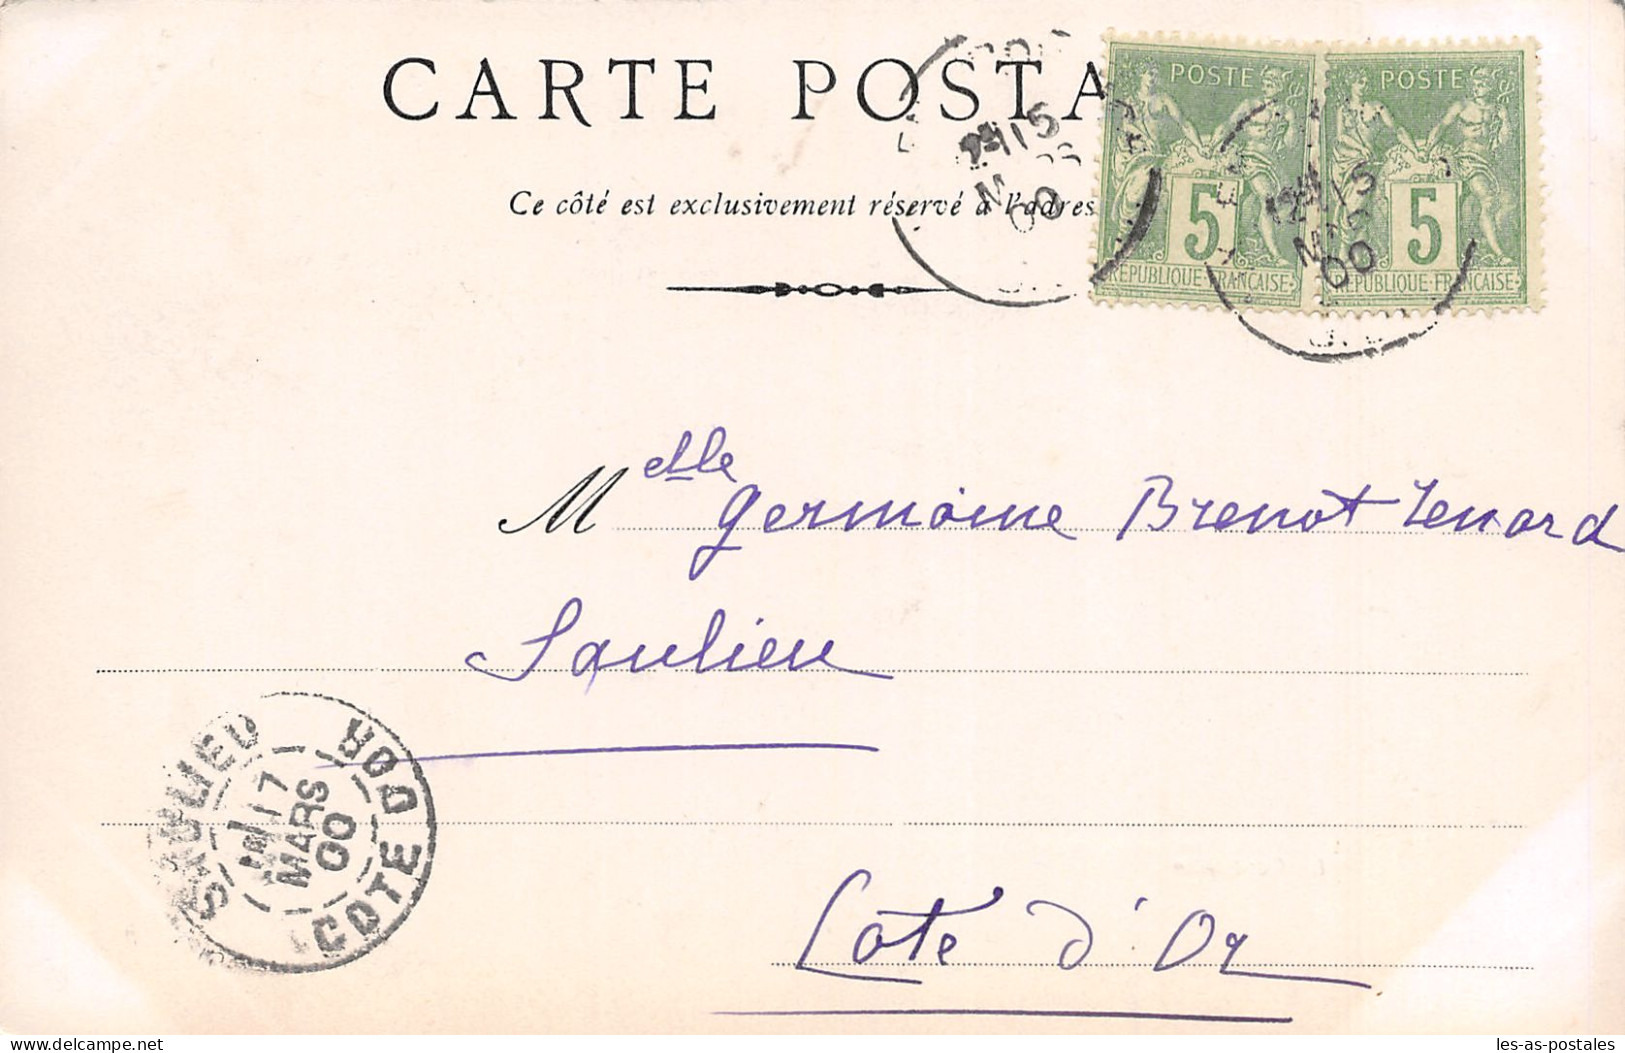 CARTE POSTA
POSTE
POSTE
Ce côté est exclusivement réservé à l'adres
5
5
RÉPUBLIQUE FRANÇAISE
RÉPUBLIQUE FRANÇAISE
15
00
15
00
Melle Germaine Brenot Tenard
Saulieu
SAULIEU
17
MARS
00
COTE D'OR
Cote d'Or
les-as-postales.com